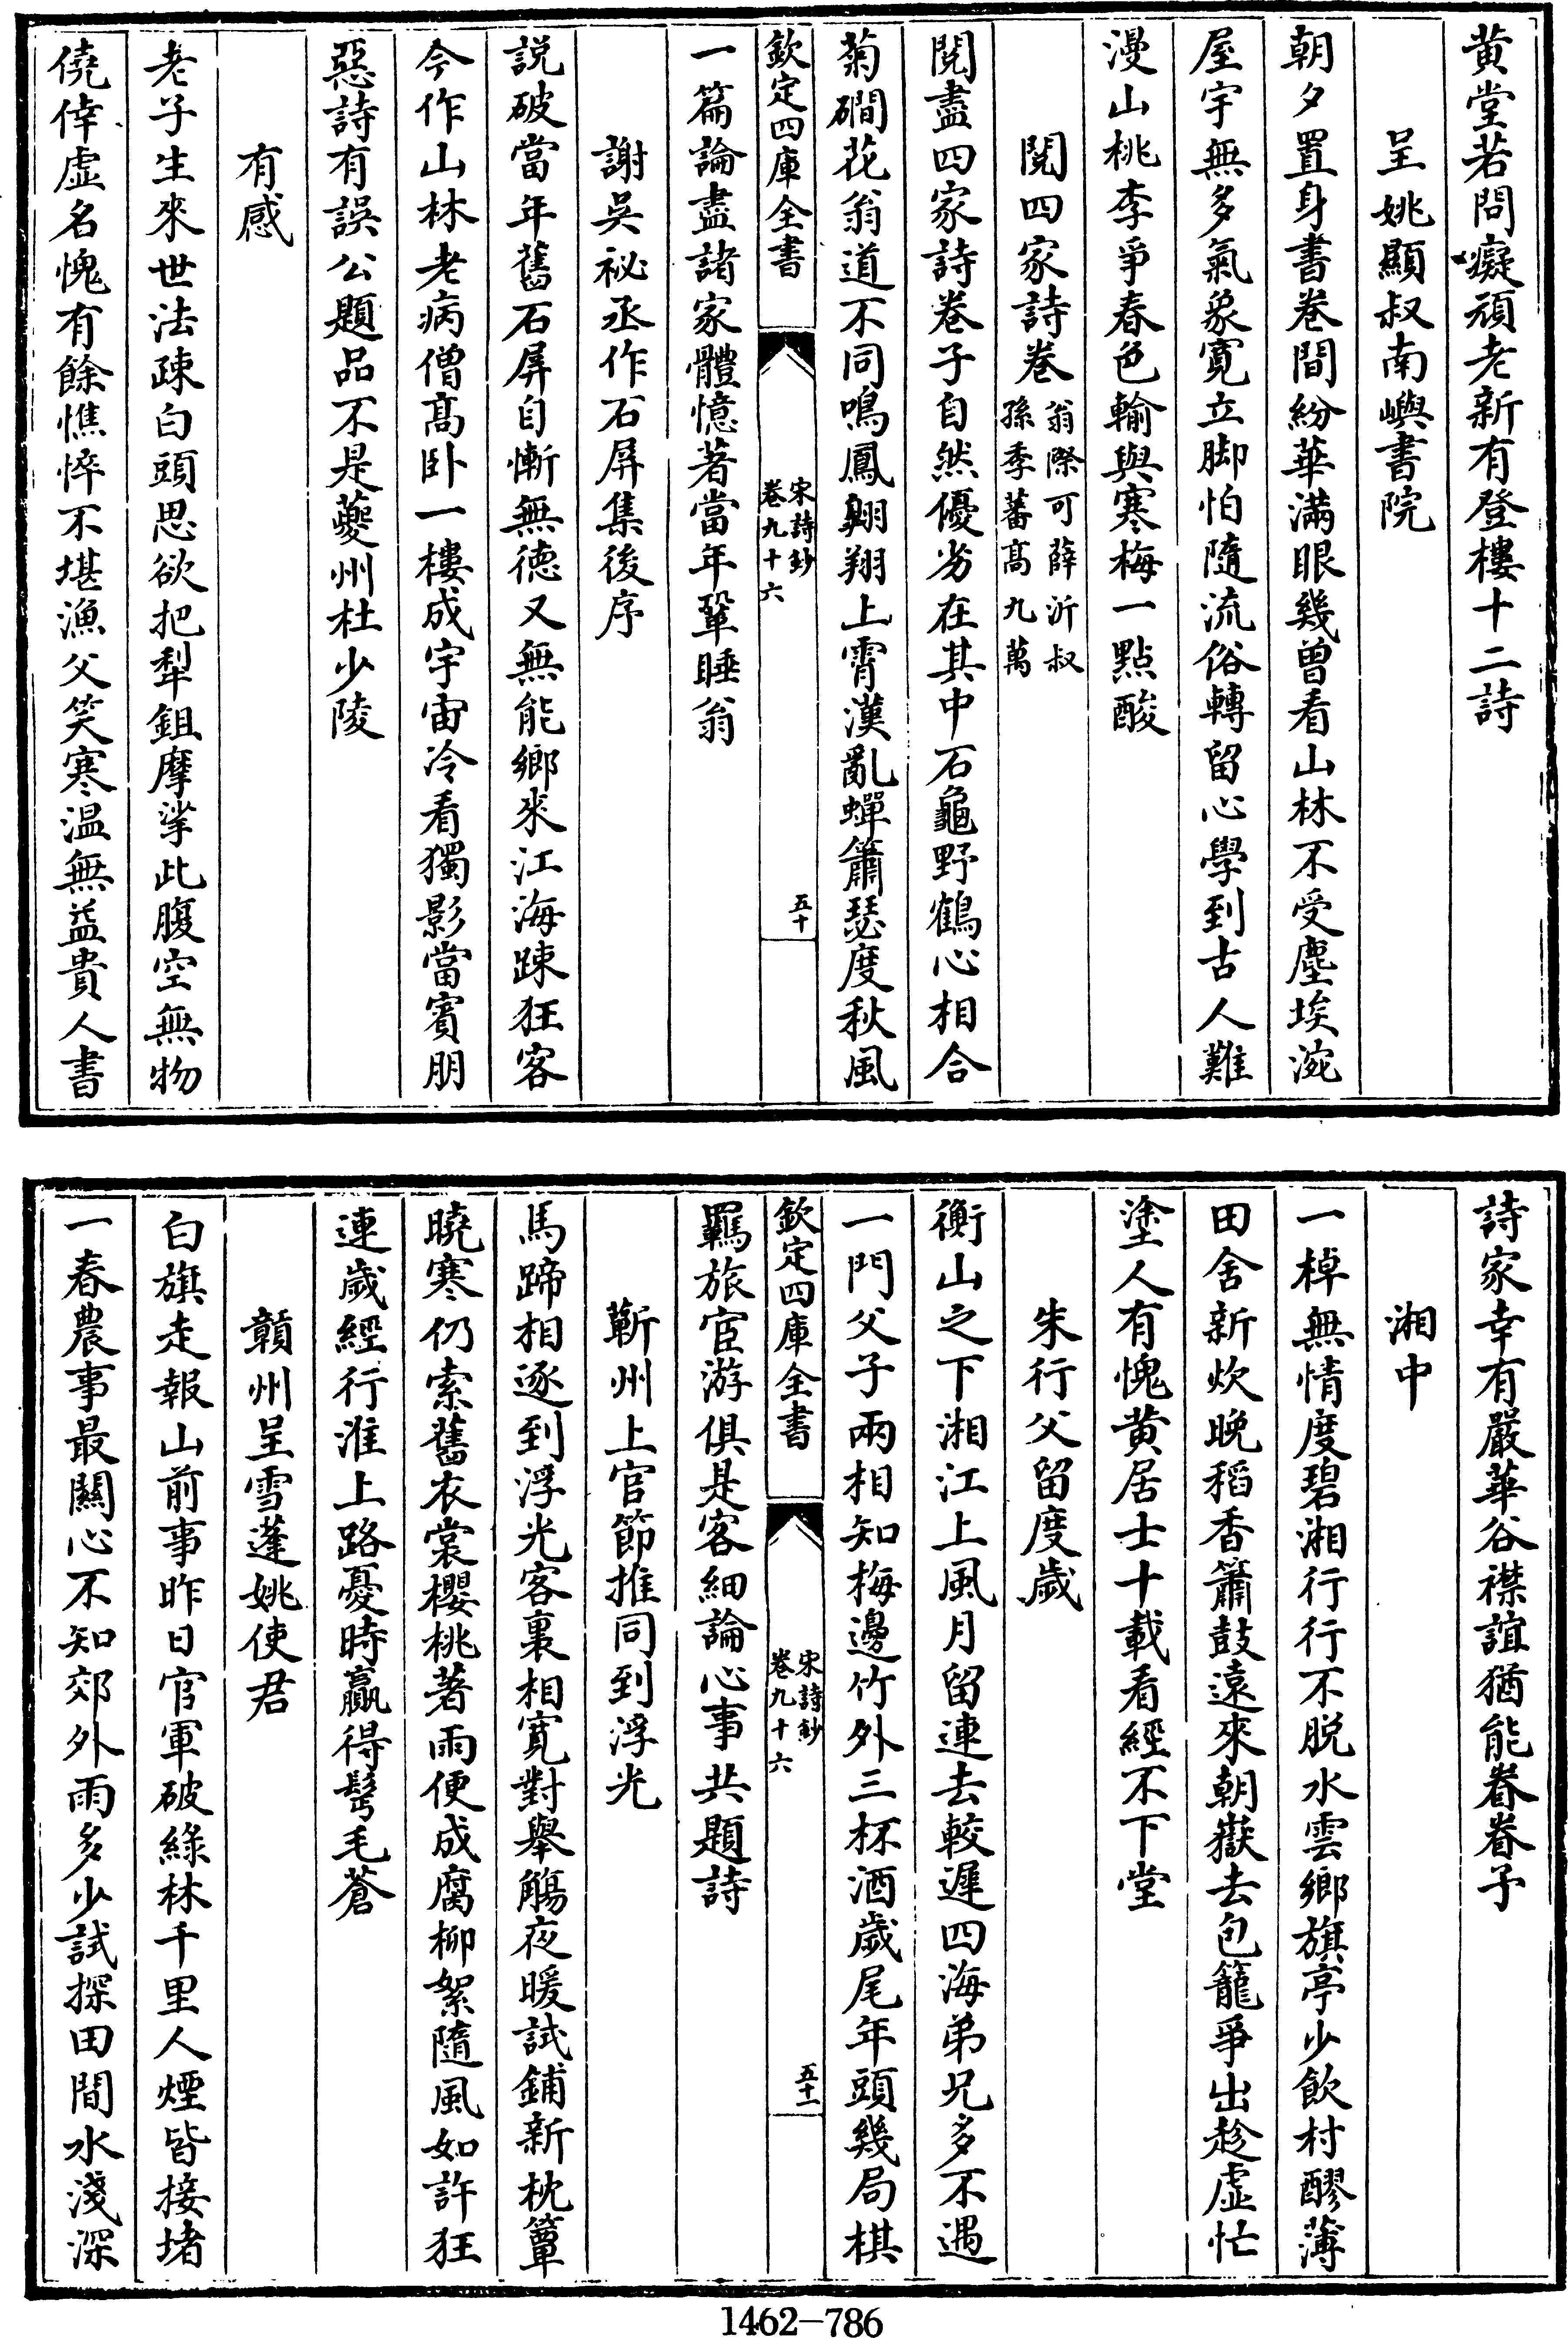 黄堂若問癡頑老新有登樓十二詩
呈姚顯叔南嶼書院
朝夕置身書卷間紛華滿眼幾曾看山林不受塵埃涴
屋宇無多氣象寛立脚怕隨流俗轉留心學到古人難
漫山桃李爭春色輸與寒梅一點酸
閱四家詩卷翁際可薛沂叔
孫季蕃髙九萬
閱盡四家詩卷子自然優劣在其中石龜野鶴心相合
菊磵花翁道不同鳴鳳翺翔上霄漢亂蟬簫瑟度秋風
欽定四庫全書
宋詩鈔
卷九十六
五十
一篇論盡諸家體憶著當年鞏睡翁
謝吳祕丞作石屏集後序
説破當年舊石屏自慚無德又無能鄉來江海踈狂客
今作山林老病僧髙卧一樓成宇宙冷看獨影當賓朋
惡詩有誤公題品不是夔州杜少陵
有感
老子生來世法踈白頭思欲把犁鉏摩挲此腹空無物
僥倖虚名愧有餘憔悴不堪漁父笑寒温無益貴人書
詩家幸有嚴華谷襟誼猶能眷眷予
湘中
一棹無情度碧湘行行不脱水雲鄉旗亭少飲村醪薄
田舍新炊晚稻香簫鼓遠來朝嶽去包籠爭出趁虚忙
塗人有愧黄居士十載看經不下堂
朱行父留度歲
衡山之下湘江上風月留連去較遲四海弟兄多不遇
一門父子兩相知梅邊竹外三杯酒歲尾年頭幾局棋
欽定四庫全書
宋詩鈔
卷九十六
五十一
羈旅宦游俱是客細論心事共題詩
蘄州上官節推同到浮光
馬蹄相逐到浮光客裏相寛對舉觴夜暖試鋪新枕簟
曉寒仍索舊衣裳櫻桃著雨便成腐柳絮隨風如許狂
連歲經行淮上路憂時贏得鬢毛蒼
贛州呈雪蓬姚使君
白旗走報山前事昨日官軍破綠林千里人煙皆接堵
一春農事最關心不知郊外雨多少試探田間水淺深
1462-786